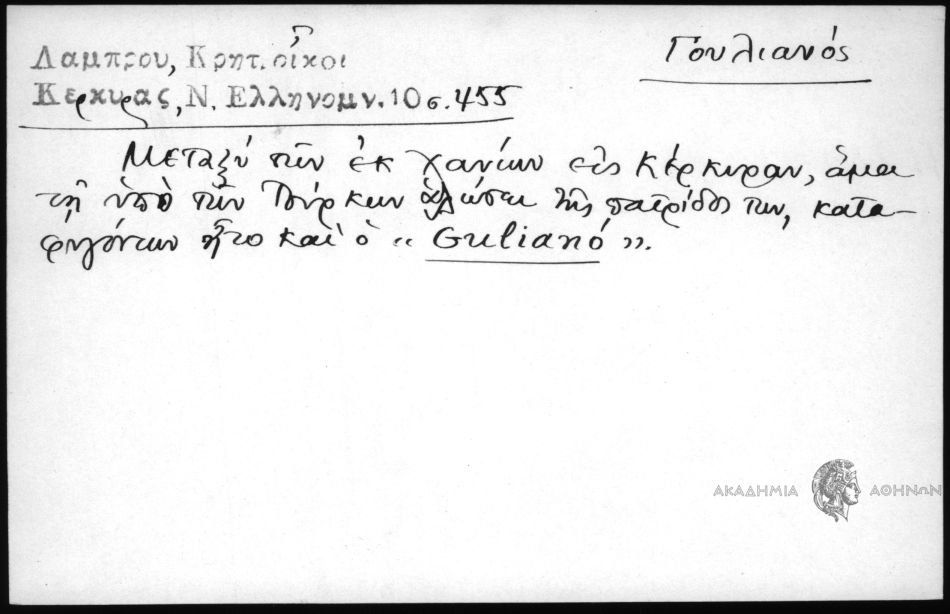 Γουλιανός
Λαμπρου, Κρητ. οἶκοι
Κερκυρας, Ν. Ελληνομν. 10 σ. 455
Μεταξύ τῶν ἐκ Χανίων εἰς Κέρκυραν, ἅμα
τῇ ὑπὸ τῶν Τούρκων ἁλώσει τῆς πατρίδος των, κατα-
φυγόντων ἦτο καὶ ὁ « Guliano ».
ΑΚΑΔΗΜΙΑ ΑΘΗΝΩΝ